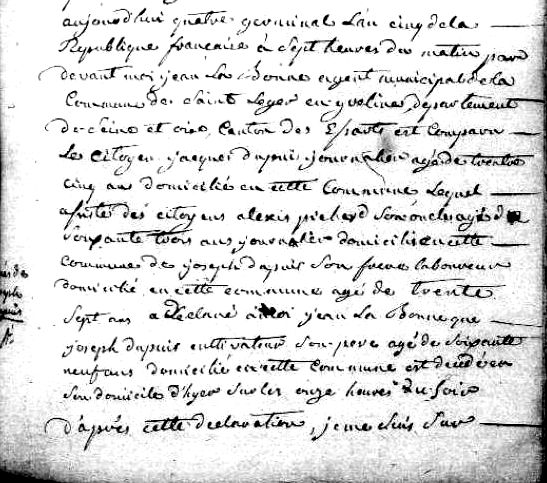 aujourd'hui quatre germinal l'an cinq de la
Republique francaise à sept heures du matin par
devant moi jean La Bonne agent municipal de la
Commune de Saint Leger en yveline, departement
de seine et oise, Canton des Essarts est Comparu
Le Citoyen jacques dupuis journalier agé de trente
cinq ans domicilié en cette Commune Lequel
assisté des citoyens alexis pichard son oncle agé de
soixante trois ans journalier domicilié en cette
commune de joseph dupuis son frere laboureur
domicilié en cette commune agé de trente
sept ans a declaré à moi jean La Bonne que
joseph dupuis cultivateur son pere agé de soixante
neuf ans domicilié en cette Commune est decedé en
son domicile d'hyer sur les onze heures du soir
d'après cette declaration, je me suis sur